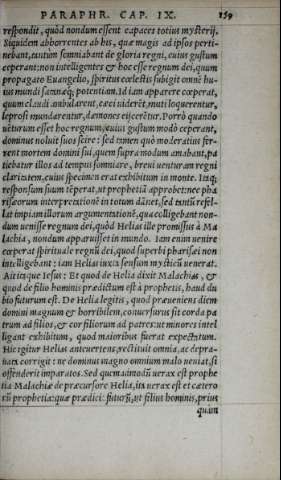 PARAPHR. CAP. IX. 159
respondit, quòd nondum essent capaces totius mysterij.
Siquidem abhorrentes ab his, quæ magis ad ipsos perti-
nebant, tantùm somniabant de gloria regni, cuius gustum
ceperant: non intelligentes & hoc esse regnum dei, quum
propagato Euangelio, spiritus cœlestis subigit omnē hu-
ius mundi potentiam. Id iam apparere cœperat,
quum claudi ambularent, cæci viderēt, muti loquerentur,
leprosi mundarentur, dæmones eijcerētur. Porrò quando
uēturum esset hoc regnum, cuius gustum modò ceperant,
dominus noluit suos scire: sed tamen quò moderatius fer-
rent mortem domini sui, quem supra modum amabant, pa
tiebatur illos ad tempus somniare, breui uenturam regni
claritatem, cuius specimen erat exhibitum in monte. Itaq;
responsum suum tēperat, ut prophetiā approbet: nec pha
risæorum interpretationē in totum dānet, sed tantū refel-
lat impiam illorum argumentationē, qua colligebant non-
dum uenisse regnum dei, quòd Helias ille promissus à Ma
lachia, nondum apparuisset in mundo. Iam enim uenire
cœperat spirituale regnū dei, quod superbi pharisæi non
intelligebant: iam Helias iuxta sensum mysticū uenerat.
Ait itaque Iesus: Et quod de Helia dixit Malachias, &
quod de filio hominis prædictum est à prophetis, haud du
bio futurum est. De Helia legitis, quod præueniens diem
domini magnum & horribilem, conuersurus sit corda pa
trum ad filios, & cor filiorum ad patres: ut minores intel
ligant exhibitum, quod maioribus fuerat expectatum.
Hic igitur Helias anteuertens, restituit omnia, ac depra-
uata corrigit: ne dominus magno omnium malo ueniat, si
offenderit imparatos. Sed quemadmodū uerax est prophe
tia Malachiæ de præcursore Helia, ita uerax est et cætero
rū prophetia: quæ prædicit futurū, ut filius hominis, prius
quàm